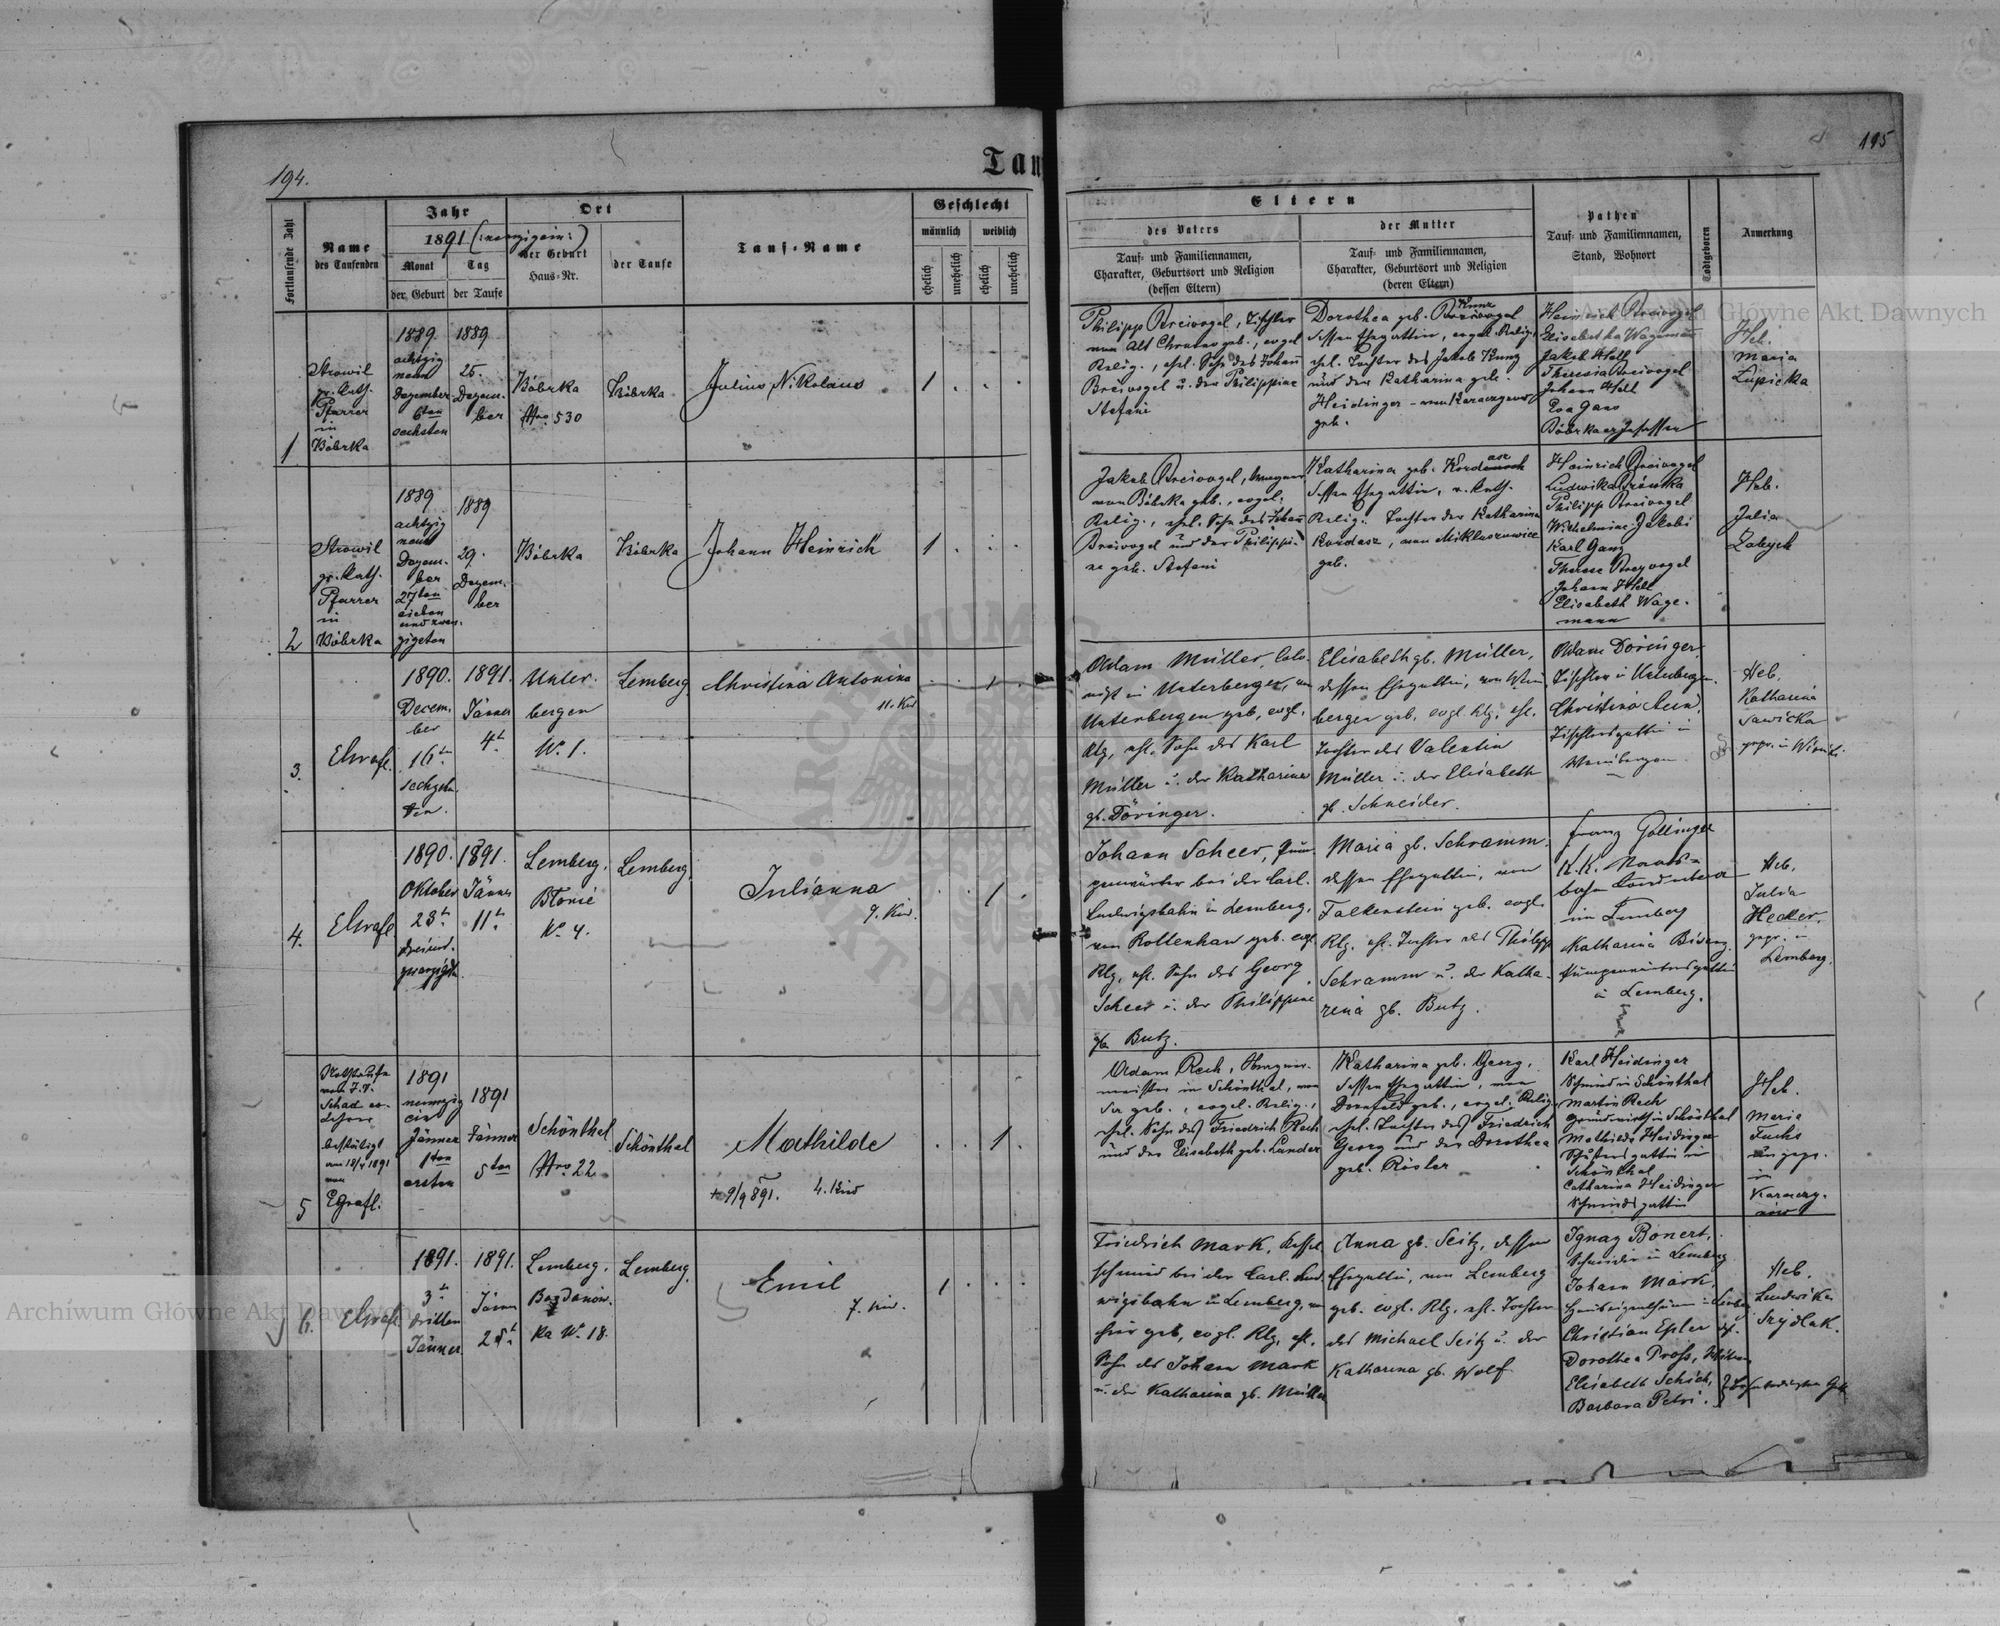 194.
Tau
195
Fortlaufende Zahl
Name
des Taufenden
Jahr
1891
Monat
Tag
der Geburt
der Taufe
Ort
der Geburt
Haus-Nr.
der Taufe
Tauf-Name
Geschlecht
männlich
weiblich
ehelich
unehelich
ehelich
unehelich
Eltern
des Vaters
Tauf- und Familiennamen,
Charakter, Geburtsort und Religion
(dessen Eltern)
der Mutter
Tauf- und Familiennamen,
Charakter, Geburtsort und Religion
(deren Eltern)
Pathen
Tauf- und Familiennamen,
Stand, Wohnort
Todtgeboren
Anmerkung
1
Strowil
gr. kath.
Pfarrer
in
Bóbrka
1889.
achtzig
neun
Dezember
6ten
sechsten
1889
25.
Dezem-
ber
Bóbrka
Nro. 530
Bóbrka
Julius Nikolaus
1
Philipp Breivogel, Tischler
von Alt Chrusno geb., evgel.
Relig., ehel. Sohn des Johann
Breivogel u. der Philippine
Stefani
Dorothea geb. Kunz
dessen Ehegattin, evgel. Relig.
ehel. Tochter des Jakob Kunz
und der Katharina geb.
Heidinger
geb.
Heinrich Breivogel
Elisabetha Wagemann
Jakob Hell
Theresia Breivogel
Johann Hell
Eva Gans
Heb.
Maria
Łupicka
2
Strowil
gr. kath.
Pfarrer
in
Bóbrka
1889
achtzig
neun
Dezem-
ber
27ten
sieben
und zwan-
zigsten
1889
29.
Dezem-
ber
Bóbrka
Bóbrka
Johann Heinrich
1
Jakob Breivogel, Wagner
von Bóbrka geb., evgel.
Relig., ehel. Sohn des Johann
Breivogel und der Philippi-
ne geb. Stefani
Katharina geb. Kordasz
dessen Ehegattin, r. kath.
Relig. Tochter der Katharina
Kordasz, von Mikluszowice
geb.
Heinrich Breivogel
Philipp Breivogel
Wilhelmine Jakobi
Karl Ganz
Therese Breyvogel
Johann Hell
Elisabeth Wage-
mann
Heb.
Julia
3.
1890.
Decem-
ber
16t
sechzehn-
ten
1891.
Jänner
4t
Unter-
bergen
N. 1.
Lemberg
Christina Antonina
11. Kind
1
Adam Müller, Colo-
nist in Unterbergen, von
Unterbergen geb, evgl.
Rlg, ehl. Sohn des Karl
Müller u. der Katharina
gb. Döringer.
Elisabeth gb. Müller,
dessen Ehegattin, von Wein-
bergen geb. evgl. Rlg. ehl.
Tochter des Valentin
Müller u. der Elisabeth
gb. Schneider.
Adam Döringer,
Tischler in Unterbergen.
Christina
Tischlersgattin in
Heb.
Katharina
Sawicka
4.
1890.
Oktober
23t
1891.
Jänner
11t
Lemberg,
Błonie
N. 4.
Lemberg.
Julianna
9. Kind.
1
Johann Scheer, Pum-
penwärter bei der Carl-
Ludwigsbahn in Lemberg,
von Rottenhan geb. evgl.
Rlg, ehl. Sohn des Georg
Scheer u. der Philippine
gb. Butz.
Maria gb. Schramm,
dessen Ehegattin, von
Falkenstein geb. evgl.
Rlg. ehl. Tochter des Philipp
Schramm u. der Katha-
rina gb. Butz.
Franz Gollinger
K.K. Staats-
in Lemberg
Katharina
in Lemberg.
Heb.
Julia
Hecker,
gepr. in
Lemberg.
5
Nothtaufe
bestätigt
1891
neunzig
ein
Jänner
1ten
ersten
1891
Jänner
5ten
Schönthal
Nro. 22
Schönthal
Mathilde
4. Kind
1
Adam Rech,
in Schönthal, von
da geb., evgel. Relig.,
ehel. Sohn des Friedrich Rech
und der Elisabeth geb. Lander
Katharina geb. Georg,
dessen Ehegattin, von
Dornfeld geb., evgel. Relig.,
ehel. Tochter des Friedrich
Georg und der Dorothea
geb. Rösler
Karl Heidinger
Schmied in Schönthal
Martin Rech
Grundwirth in Schönthal
Mathilde Heidinger
Schönthal
Catharina Heidinger
Schmiedsgattin
Heb.
Maria
Fuchs
ungepr.
in
6.
1891.
3t
dritten
Jänner
1891.
Jänner
25t
Lemberg,
Bogdanów-
ka N. 18.
Lemberg,
Emil
7. Kind.
1
Friedrich Mark, Kessel-
schmied bei der Carl-Lud-
wigsbahn in Lemberg, von
hier geb, evgl. Rlg, ehl.
Sohn des Johann Mark
u. der Katharina gb. Müller
Anna gb. Seitz, dessen
Ehegattin, von Lemberg
geb. evgl. Rlg, ehl. Tochter
des Michael Seitz u. der
Katharina gb. Wolf
Ignaz Bonert,
Schneider in Lemberg
Johann Mark,
Christian Epler
Dorothea Pross,
Elisabeth Schick,
Barbara Petri.
Heb.
Ludwika
Szydlak.
Archiwum Główne Akt Dawnych
Archiwum Główne Akt Dawnych